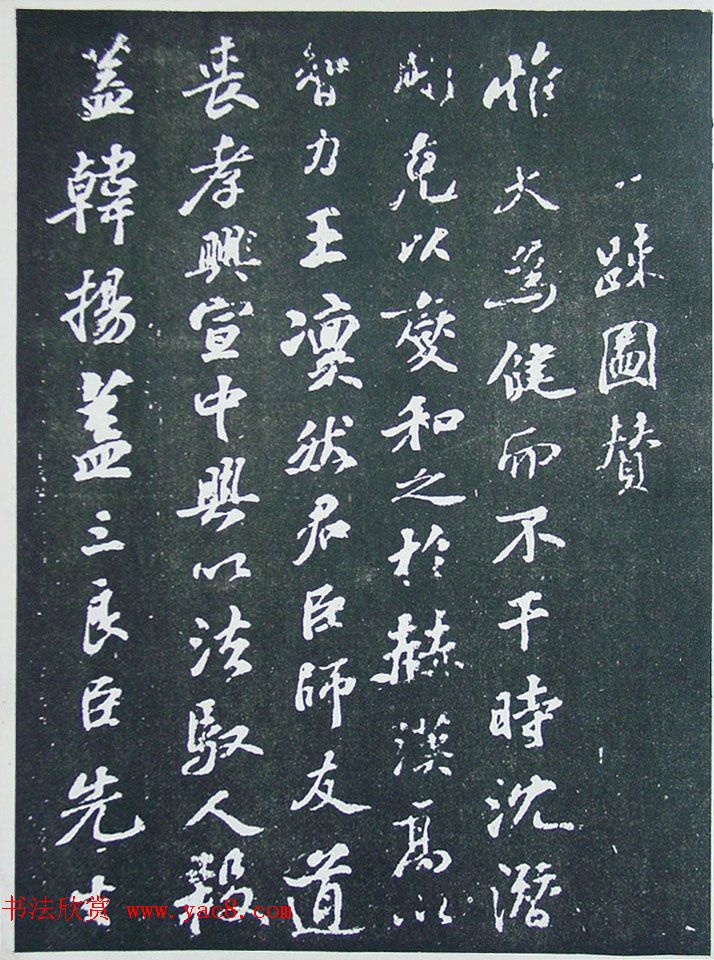 二踈圖贊
惟天為健而不干時沈潛
剛克以燮和之於赫漢高以
智力王凜然君臣師友道
喪孝興宣中興以法馭人殺
蓋韓揚蓋三良臣先生
书法欣赏 www.yac8.com